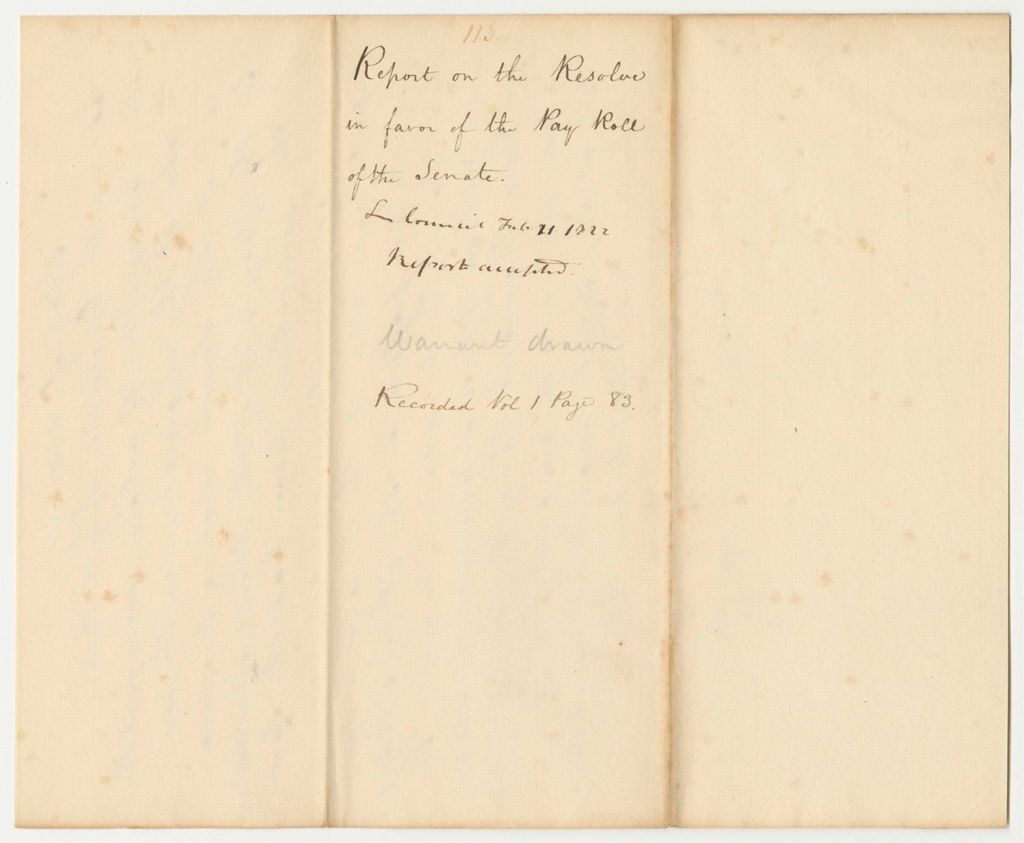 113
Report on the Resolve
in favor of the Pay Roll
of the Senate.
In Council Feb. 21 1822
Report accepted.
Warrant drawn
Recorded Vol 1 Page 83.